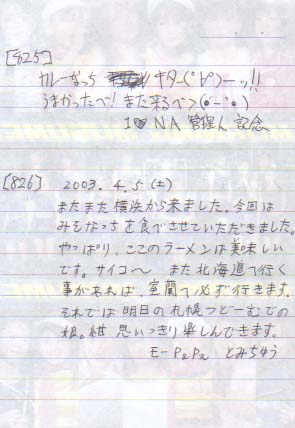 [825]
カレーなっち キター(ﾟ∀ﾟ)ーッ!!
うまかったべ! また来るべ>(●´ー`●)
I♥NA 管理人 記念
[826] 2003. 4. 5 (土)
またまた横浜から来ました。今回は
みそなっちを食べさせていただきました。
やっぱり、ここのラーメンは美味しい
です。サイコ〜 また北海道へ行く
事があれば、室蘭へ必ず行きます。
それでは明日の札幌つどーむでの
娘。紺 思いっきり楽しんできます。
モーPaPa とみちゅう